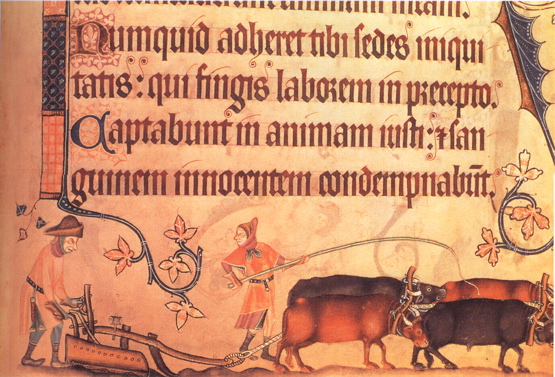 animam meam.
Numquid adheret tibi sedes iniqui
tatis: qui fingis laborem in precepto.
Captabunt in animam iusti: ⁊ san
guinem innocentem condempnabūt.